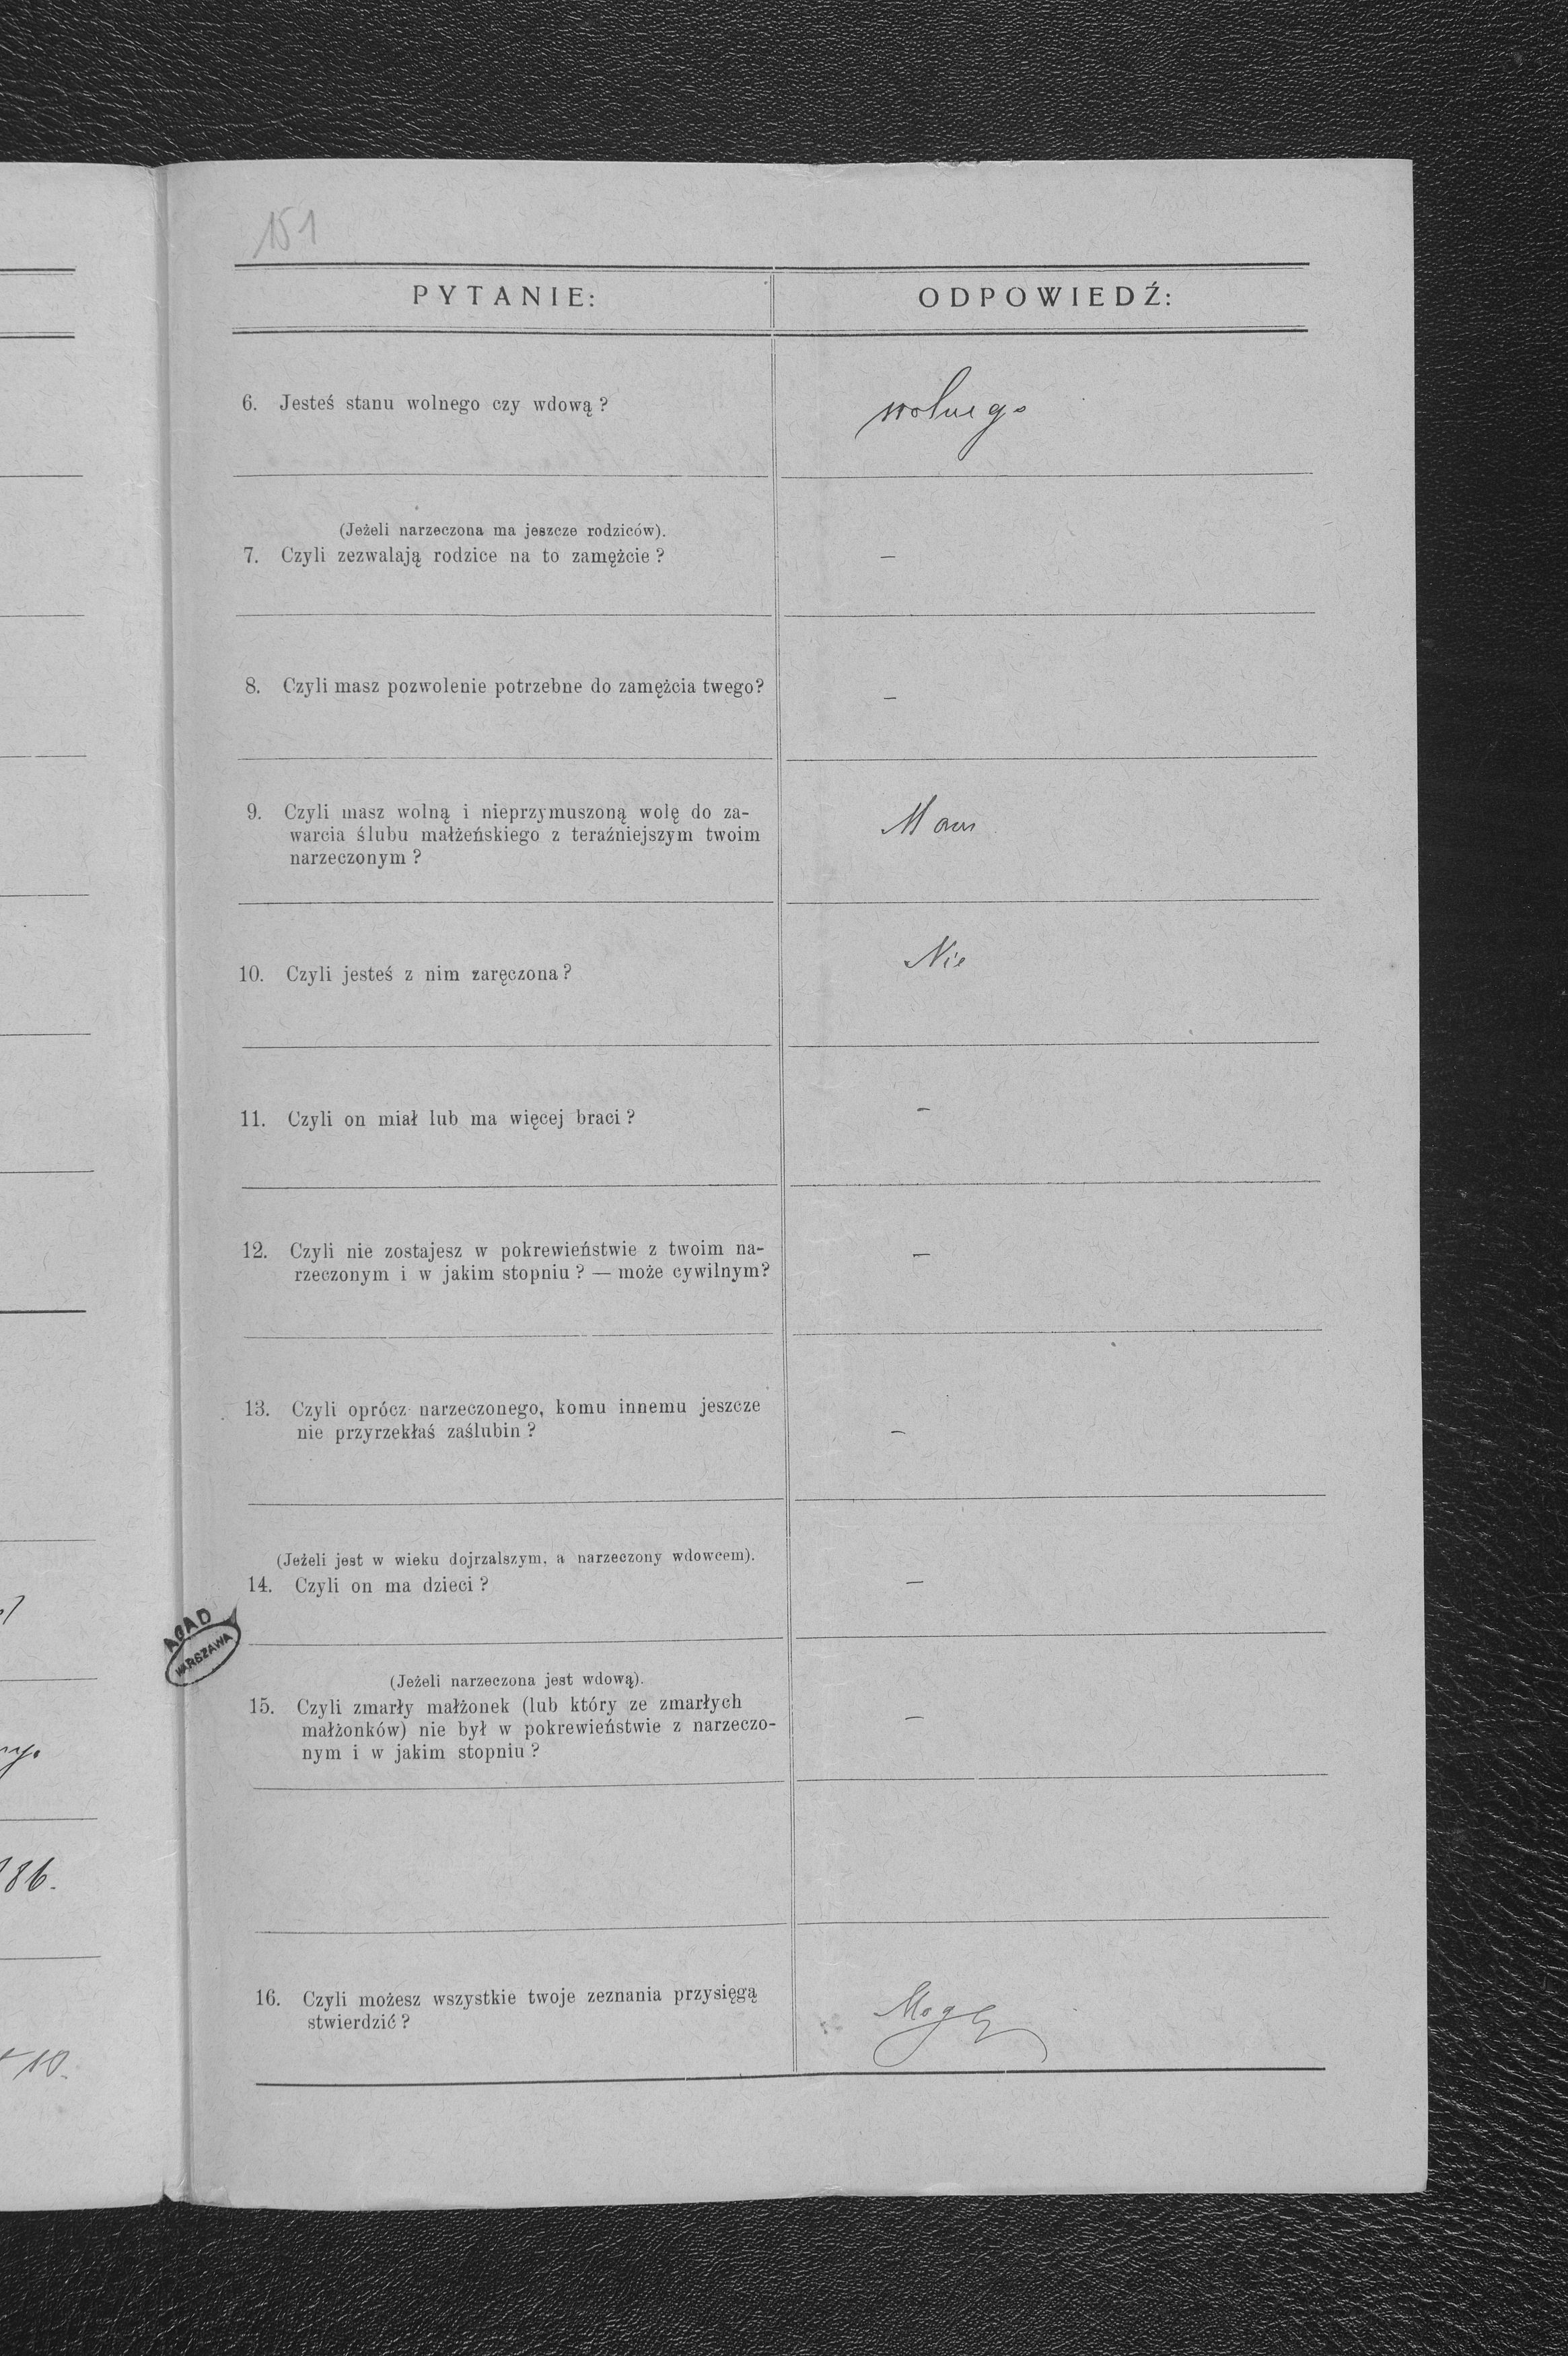 151
PYTANIE: ODPOWIEDŹ:
6. Jesteś stanu wolnego czy wdową? wolnego
(Jeżeli narzeczona ma jeszcze rodziców).
7. Czyli zezwalają rodzice na to zamężcie? –
8. Czyli masz pozwolenie potrzebne do zamężcia twego? –
9. Czyli masz wolną i nieprzymuszoną wolę do za-
warcia ślubu małżeńskiego z teraźniejszym twoim
narzeczonym?
Mam
10. Czyli jesteś z nim zaręczona? Nie
11. Czyli on miał lub ma więcej braci? –
12. Czyli nie zostajesz w pokrewieństwie z twoim na-
rzeczonym i w jakim stopniu? — może cywilnym?
–
13. Czyli oprócz narzeczonego, komu innemu jeszcze
nie przyrzekłaś zaślubin?
–
(Jeżeli jest w wieku dojrzalszym, a narzeczony wdowcem).
14. Czyli on ma dzieci? –
AGAD
WARSZAWA
(Jeżeli narzeczona jest wdową).
15. Czyli zmarły małżonek (lub który ze zmarłych
małżonków) nie był w pokrewieństwie z narzeczo-
nym i w jakim stopniu?
–
86.
16. Czyli możesz wszystkie twoje zeznania przysięgą
stwierdzić?
Mogę
10.